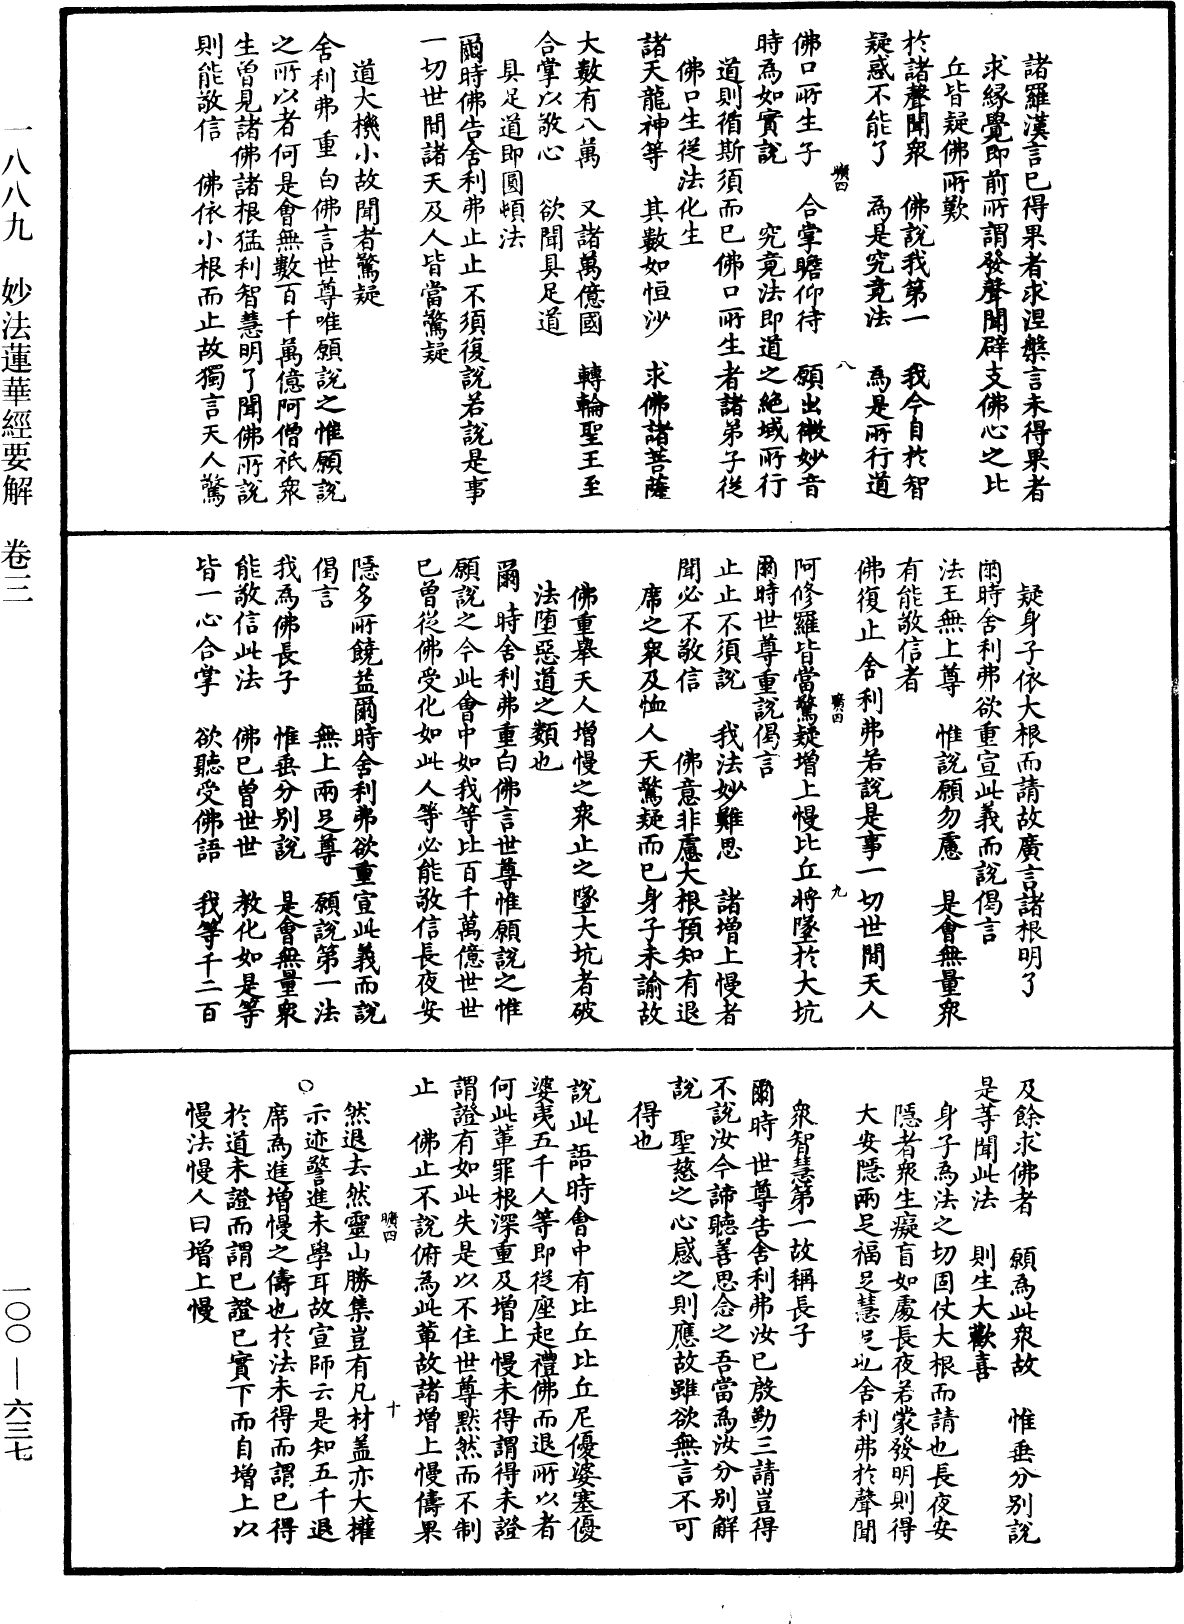 諸羅漢言已得果者求涅槃言未得果者
求緣覺即前所謂發聲聞辟支佛心之比
丘皆疑佛所歎
於諸聲聞衆　佛說我第一　我今自於智
疑惑不能了　為是究竟法　為是所行道
佛口所生子　合掌瞻仰待　願出微妙音
時為如實說　　究竟法即道之絕域所行
道則循斯須而已佛口所生者諸弟子從
佛口生從法化生
諸天龍神等　其數如恒沙　求佛諸菩薩
大數有八萬　又諸萬億國　轉輪聖王至
合掌以敬心　欲聞具足道
具足道即圓頓法
爾時佛告舍利弗止止不須復說若說是事
一切世間諸天及人皆當驚疑
道大機小故聞者驚疑
舍利弗重白佛言世尊唯願說之惟願說
之所以者何是會無數百千萬億阿僧祇衆
生曾見諸佛諸根猛利智慧明了聞佛所說
則能敬信　佛依小根而止故獨言天人驚
曠四
八
疑身子依大根而請故廣言諸根明了
爾時舍利弗欲重宣此義而說偈言
法王無上尊　惟說願勿慮　是會無量衆
有能敬信者
佛復止舍利弗若說是事一切世間天人
阿修羅皆當驚疑增上慢比丘將墜於大坑
爾時世尊重說偈言
止止不須說　我法妙難思　諸增上慢者
聞必不敬信　　佛意非慮大根預知有退
席之衆及恤人天驚疑而已身子未諭故
佛重舉天人增慢之衆止之墜大坑者破
法墮惡道之類也
爾時舍利弗重白佛言世尊惟願說之惟
願說之今此會中如我等比百千萬億世世
已曾從佛受化如此人等必能敬信長夜安
隱多所饒益爾時舍利弗欲重宣此義而說
偈言　　　無上兩足尊　願說第一法
我為佛長子　惟垂分別說　是會無量衆
能敬信此法　佛已曾世世　教化如是等
皆一心合掌　欲聽受佛語　我等千二百
曠四
九
及餘求佛者　願為此衆故　惟垂分別說
是等聞此法　則生大歡喜
身子為法之切固仗大根而請也長夜安
隱者衆生癡盲如處長夜若蒙發明則得
大安隱兩足福足慧足也舍利弗於聲聞
衆智慧第一故稱長子
爾時世尊告舍利弗汝已慇勤三請豈得
不說汝今諦聽善思念之吾當為汝分別解
說　聖慈之心感之則應故雖欲無言不可
得也
說此語時會中有比丘比丘尼優婆塞優
婆夷五千人等即從座起禮佛而退所以者
何此輩罪根深重及增上慢未得謂得未證
謂證有如此失是以不住世尊默然而不制
止　佛止不說俯為此輩故諸增上慢儔果
然退去然靈山勝集豈有凡材蓋亦大權
示迹警進未學耳故宣師云是知五千退
席為進增慢之儔也於法未得而謂已得
於道未證而謂已證已實下而自增上以
慢法慢人曰增上慢
曠四
十
一八八九　妙法蓮華經要解　卷三
一〇〇—六三七